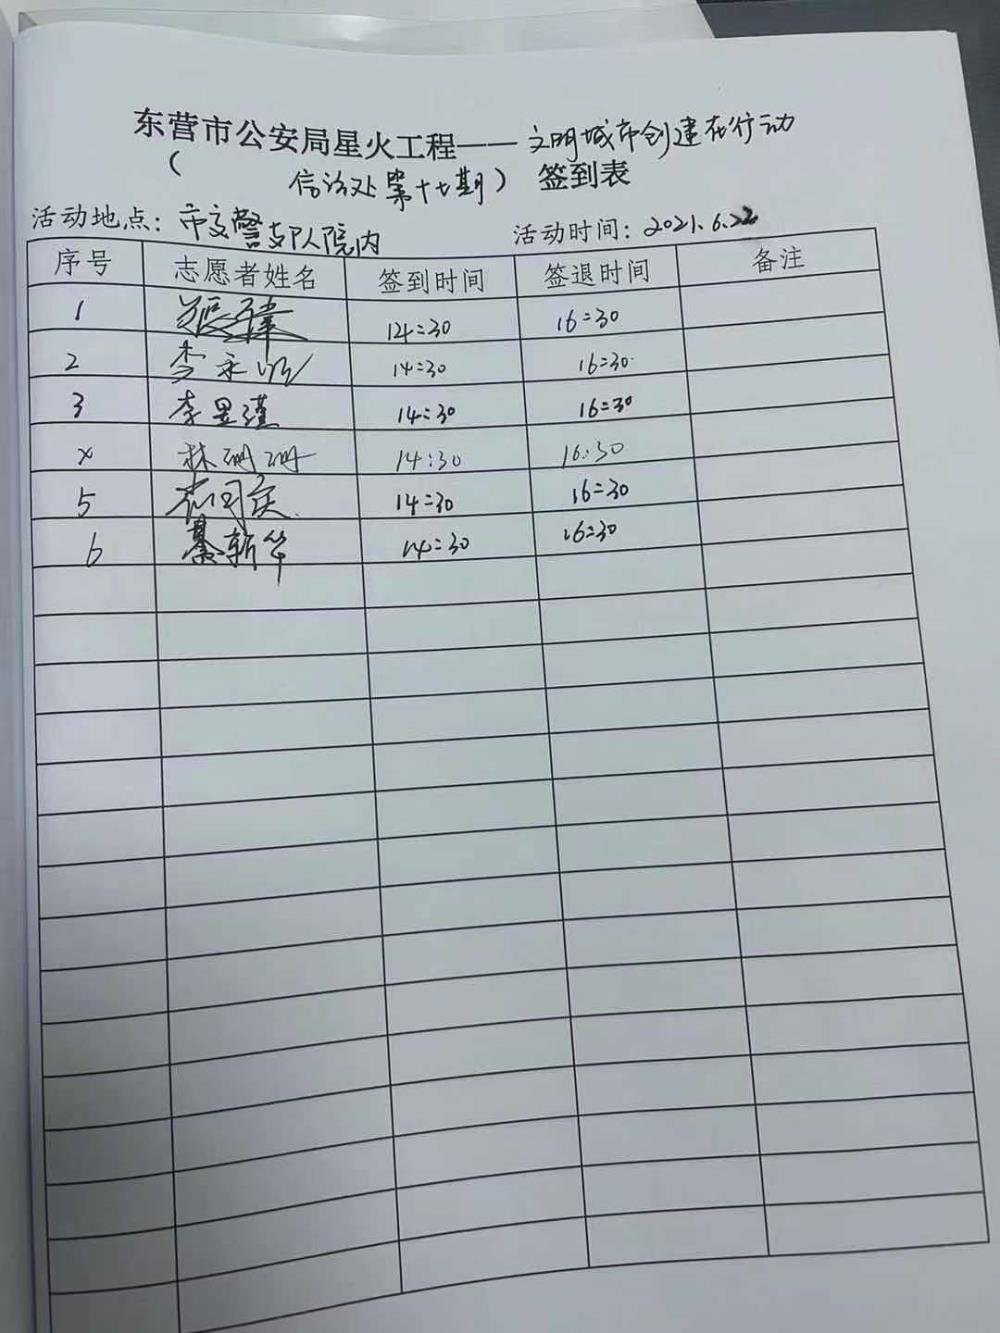 东营市公安局星火工程——文明城市创建在行动
(信访处第十七期) 签到表
活动地点：市交警支队院内 活动时间：2021.6.22
序号 志愿者姓名 签到时间 签退时间 备注
1 张肆 14:30 16:30
2 李永 14:30 16:30
3 李昱瑾 14:30 16:30
4 林珊珊 14:30 16:30
5 14:30 16:30
6 綦新华 14:30 16:30